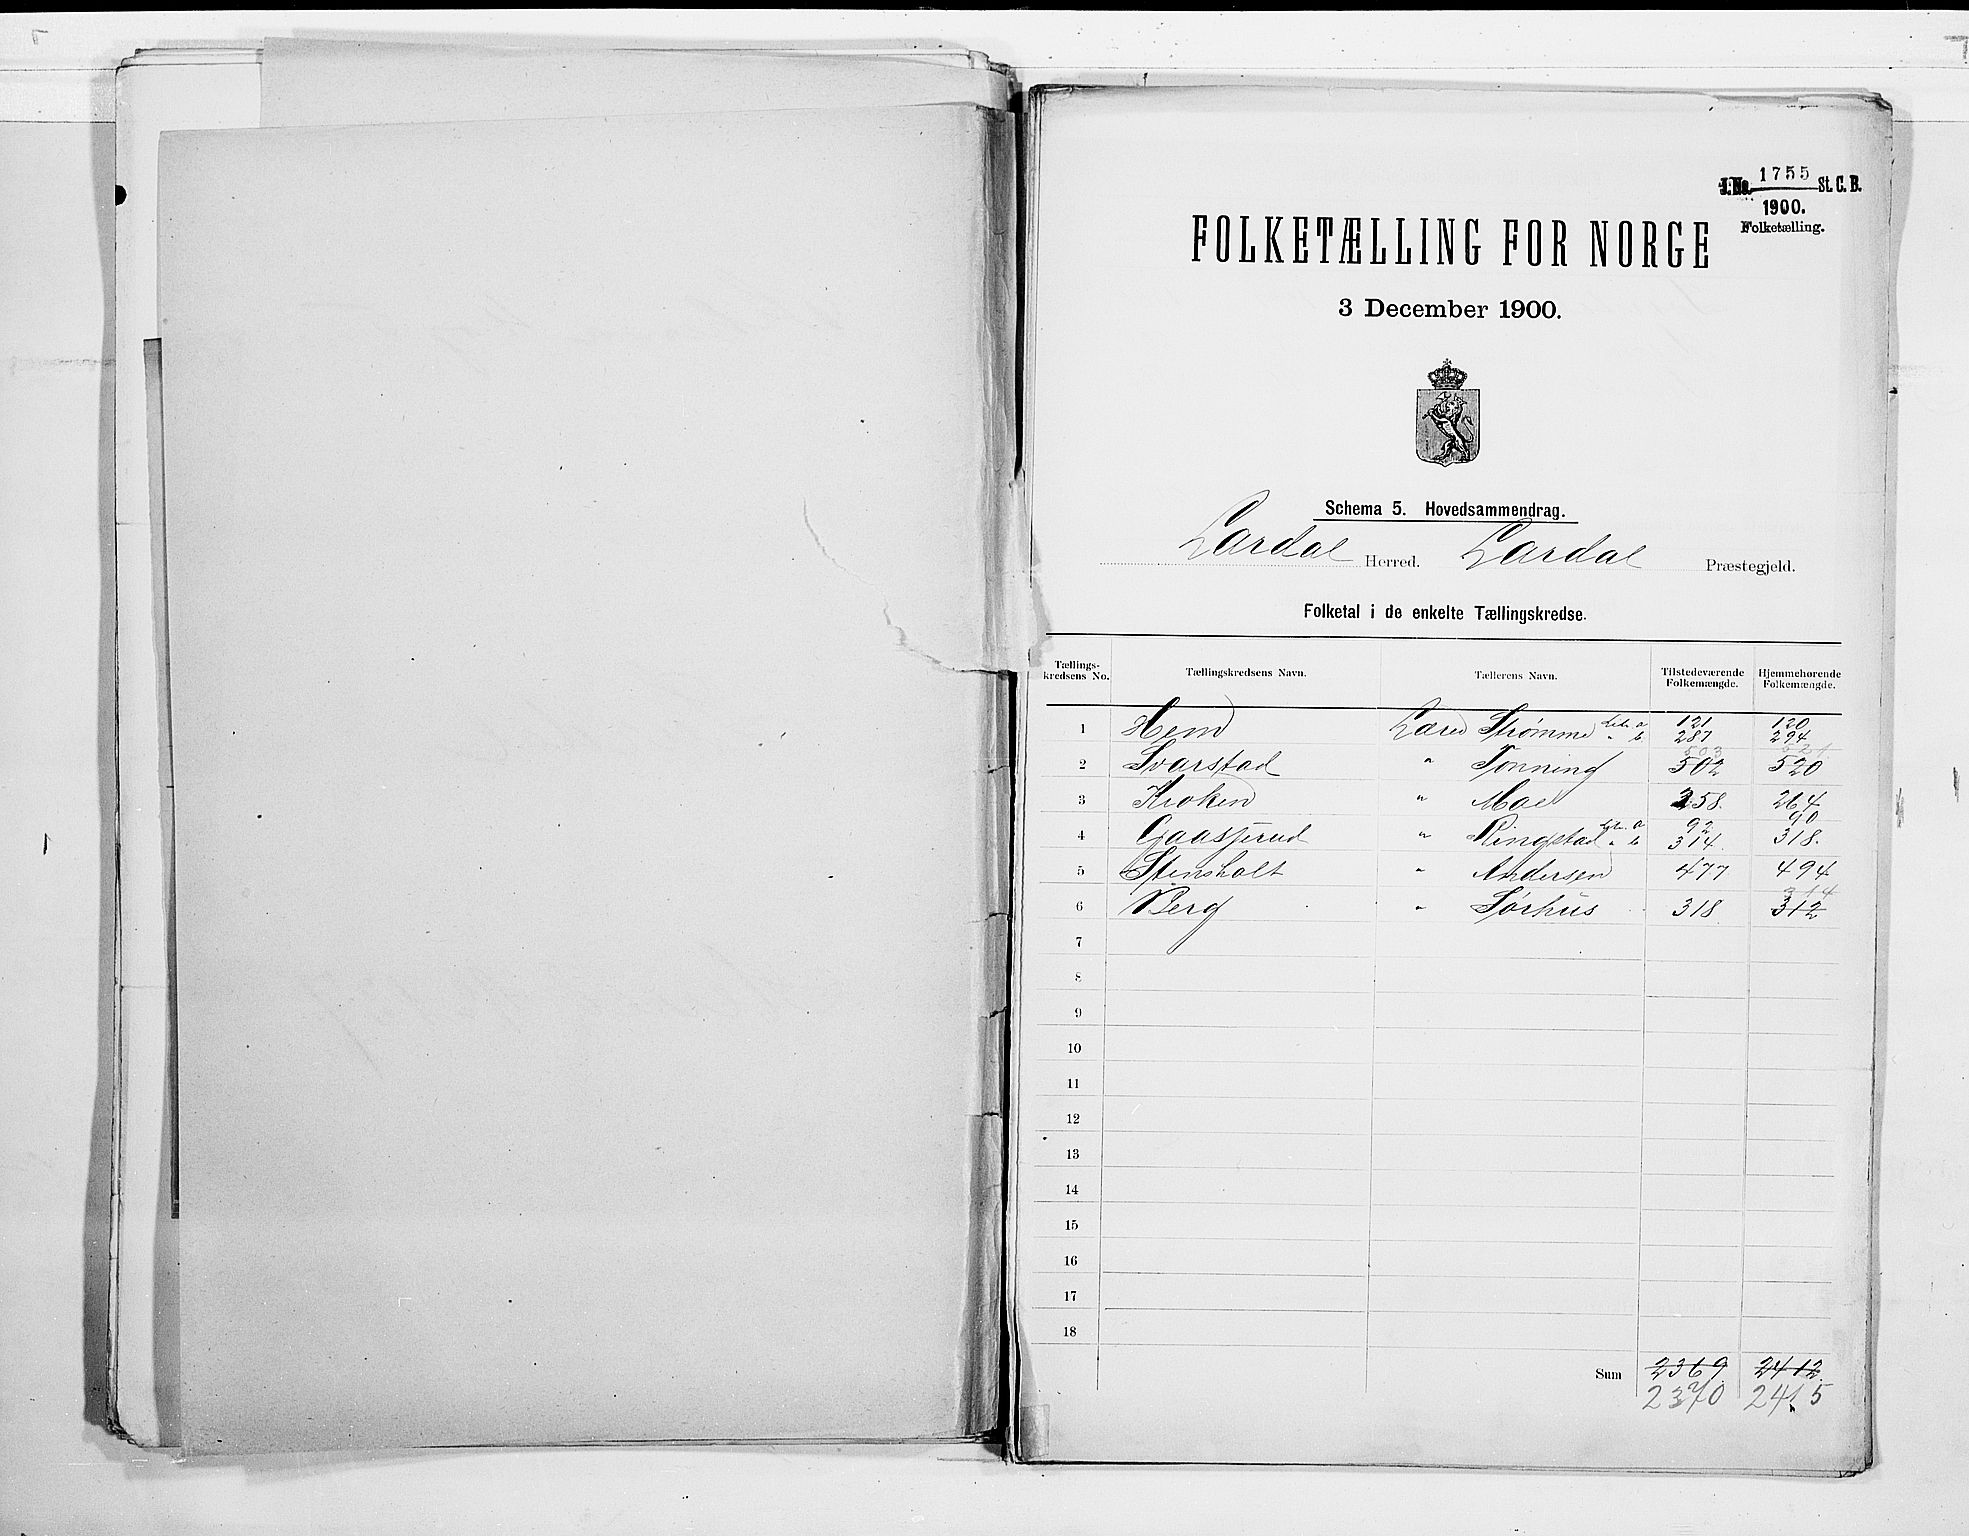 J. No. 1755 St. C. B.
1900.
Folketælling.
FOLKETÆLLING FOR NORGE
3 December 1900.
Schema 5. Hovedsammendrag.
Lardal Herred. Lardal Præstegjeld.
Folketal i de enkelte Tællingskredse.
Tællings-kredsens No. Tællingskredsens Navn. Tællerens Navn. Tilstedeværende Folkemængde. Hjemmehørende Folkemængde.
1 Hem Lærer Strømme litr. a 121 120
" b. 287 294
503 521
2 Svarstad " Tonning 502 520
3 Kroken " Moe 258. 264
4 Gaasjerud " Ringstad litr. a 92 90
" b 314. 318.
5 Stensholt " Andersen 477 494
314
6 Berg " Sørhus 318 312
7
8
9
10
11
12
13
14
15
16
17
18
Sum 2369 2412
2370 2415